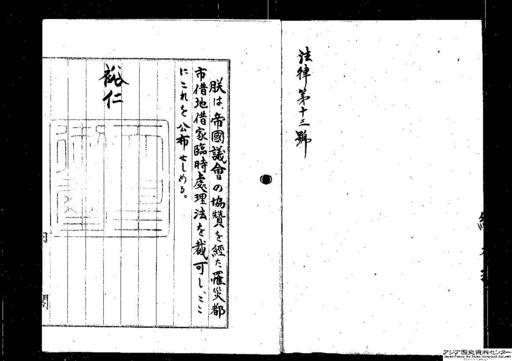 法律第十三號
朕は帝國議會の協贊を經た罹災都
市借地借家臨時處理法を裁可し、ここ
にこれを公布せしめる。
裕仁
内閣
アジア歴史資料センター